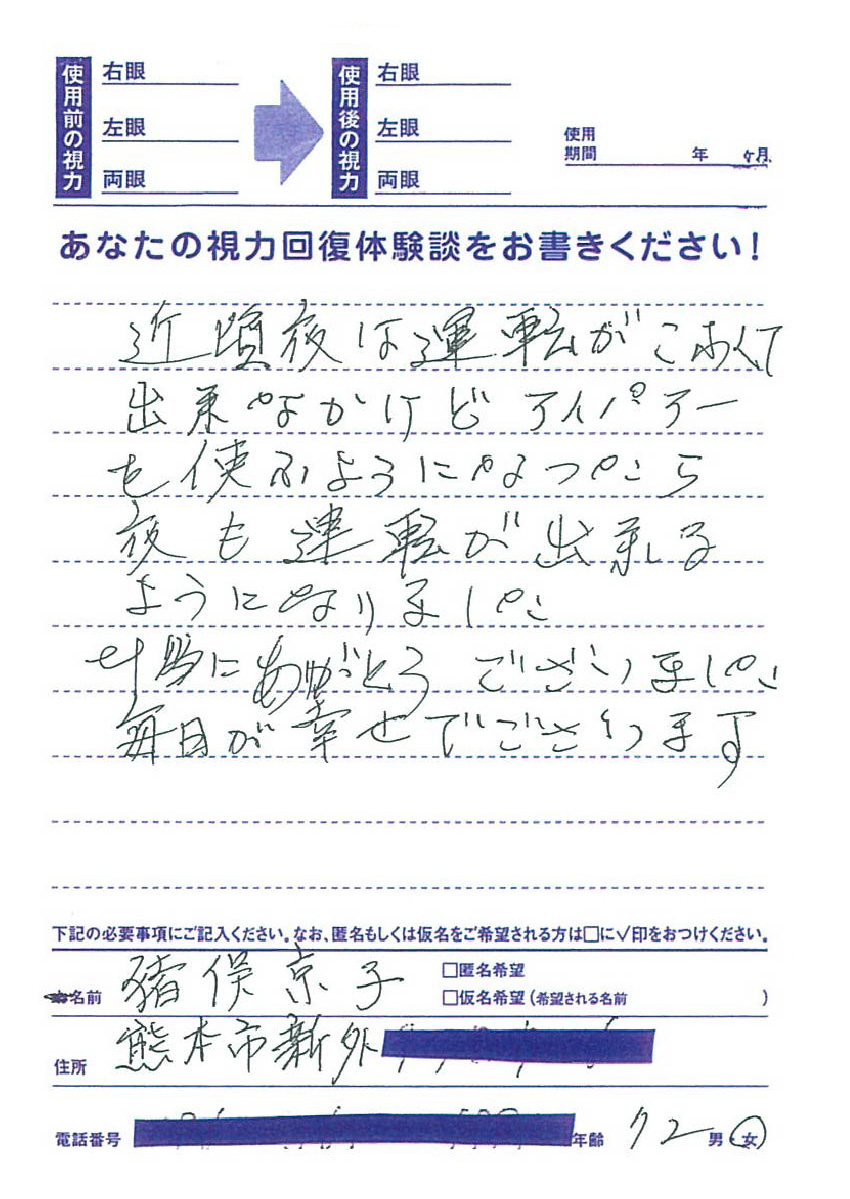 使用前の視力
右眼
左眼
両眼
使用後の視力
右眼
左眼
両眼
使用
期間 年 ヶ月
あなたの視力回復体験談をお書きください!
近頃夜は運転がこわくて
出来なかけどアイパワー
を使ふようになつたら
夜も運転が出来る
ようになりました
本当にありがとうございました
毎日が幸せでございます
下記の必要事項にご記入ください。なお、匿名もしくは仮名をご希望される方は□に√印をおつけください。
名前 猪俣京子
□匿名希望
□仮名希望(希望される名前 )
住所 熊本市新外
電話番号
年齢 72 男・女